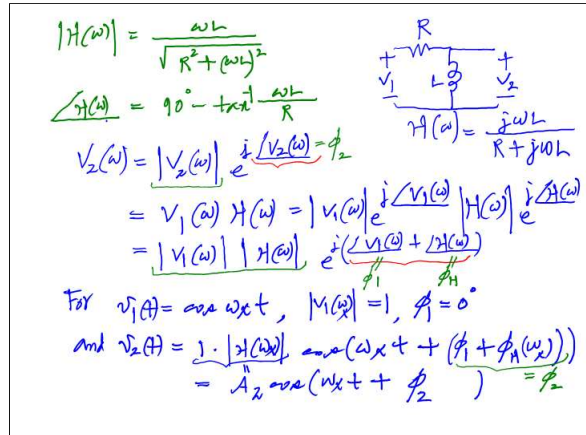 |H(ω)| = ωL / √(R² + (ωL)²)
∠H(ω) = 90° - tan⁻¹ ωL / R
R
+ V₁ -
L
+ V₂ -
H(ω) = jωL / (R + jωL)
V₂(ω) = |V₂(ω)| e^{j∠V₂(ω)} = ϕ₂
= V₁(ω) H(ω) = |V₁(ω)| e^{j∠V₁(ω)} |H(ω)| e^{j∠H(ω)}
= |V₁(ω)| |H(ω)| e^{j(∠V₁(ω) + ∠H(ω))}
ϕ₁ ϕ_H
For v₁(t) = cos ωₓt, |V₁(ωₓ)| = 1, ϕ₁ = 0°
and v₂(t) = 1 · |H(ωₓ)| cos(ωₓt + (ϕ₁ + ϕ_H(ωₓ)))
= A₂ cos(ωₓt + ϕ₂ ) = ϕ₂